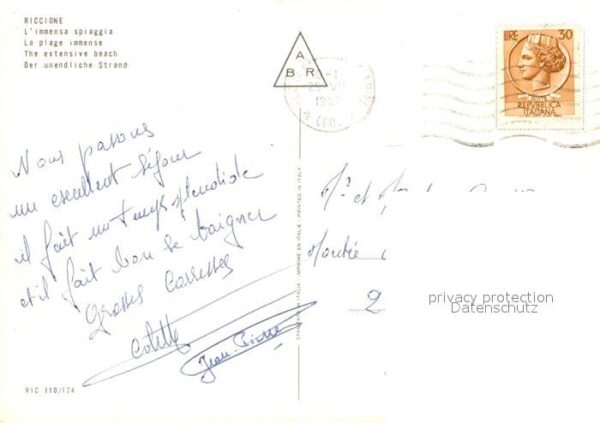 RICCIONE
L'immensa spiaggia
La plage immense
The extensive beach
Der unendliche Strand
A
B R
LIRE 30
REPVBBLICA
ITALIANA
Nous passons
un excellent séjour
il fait un temps splendide
et il fait bon se baigner
Grosses Caresses
Colette
Jean-Pierre
PRINTED IN ITALY
IMPRIMÉ EN ITALIE
Mr et
Montée
2
privacy protection
Datenschutz
RIC 110/124